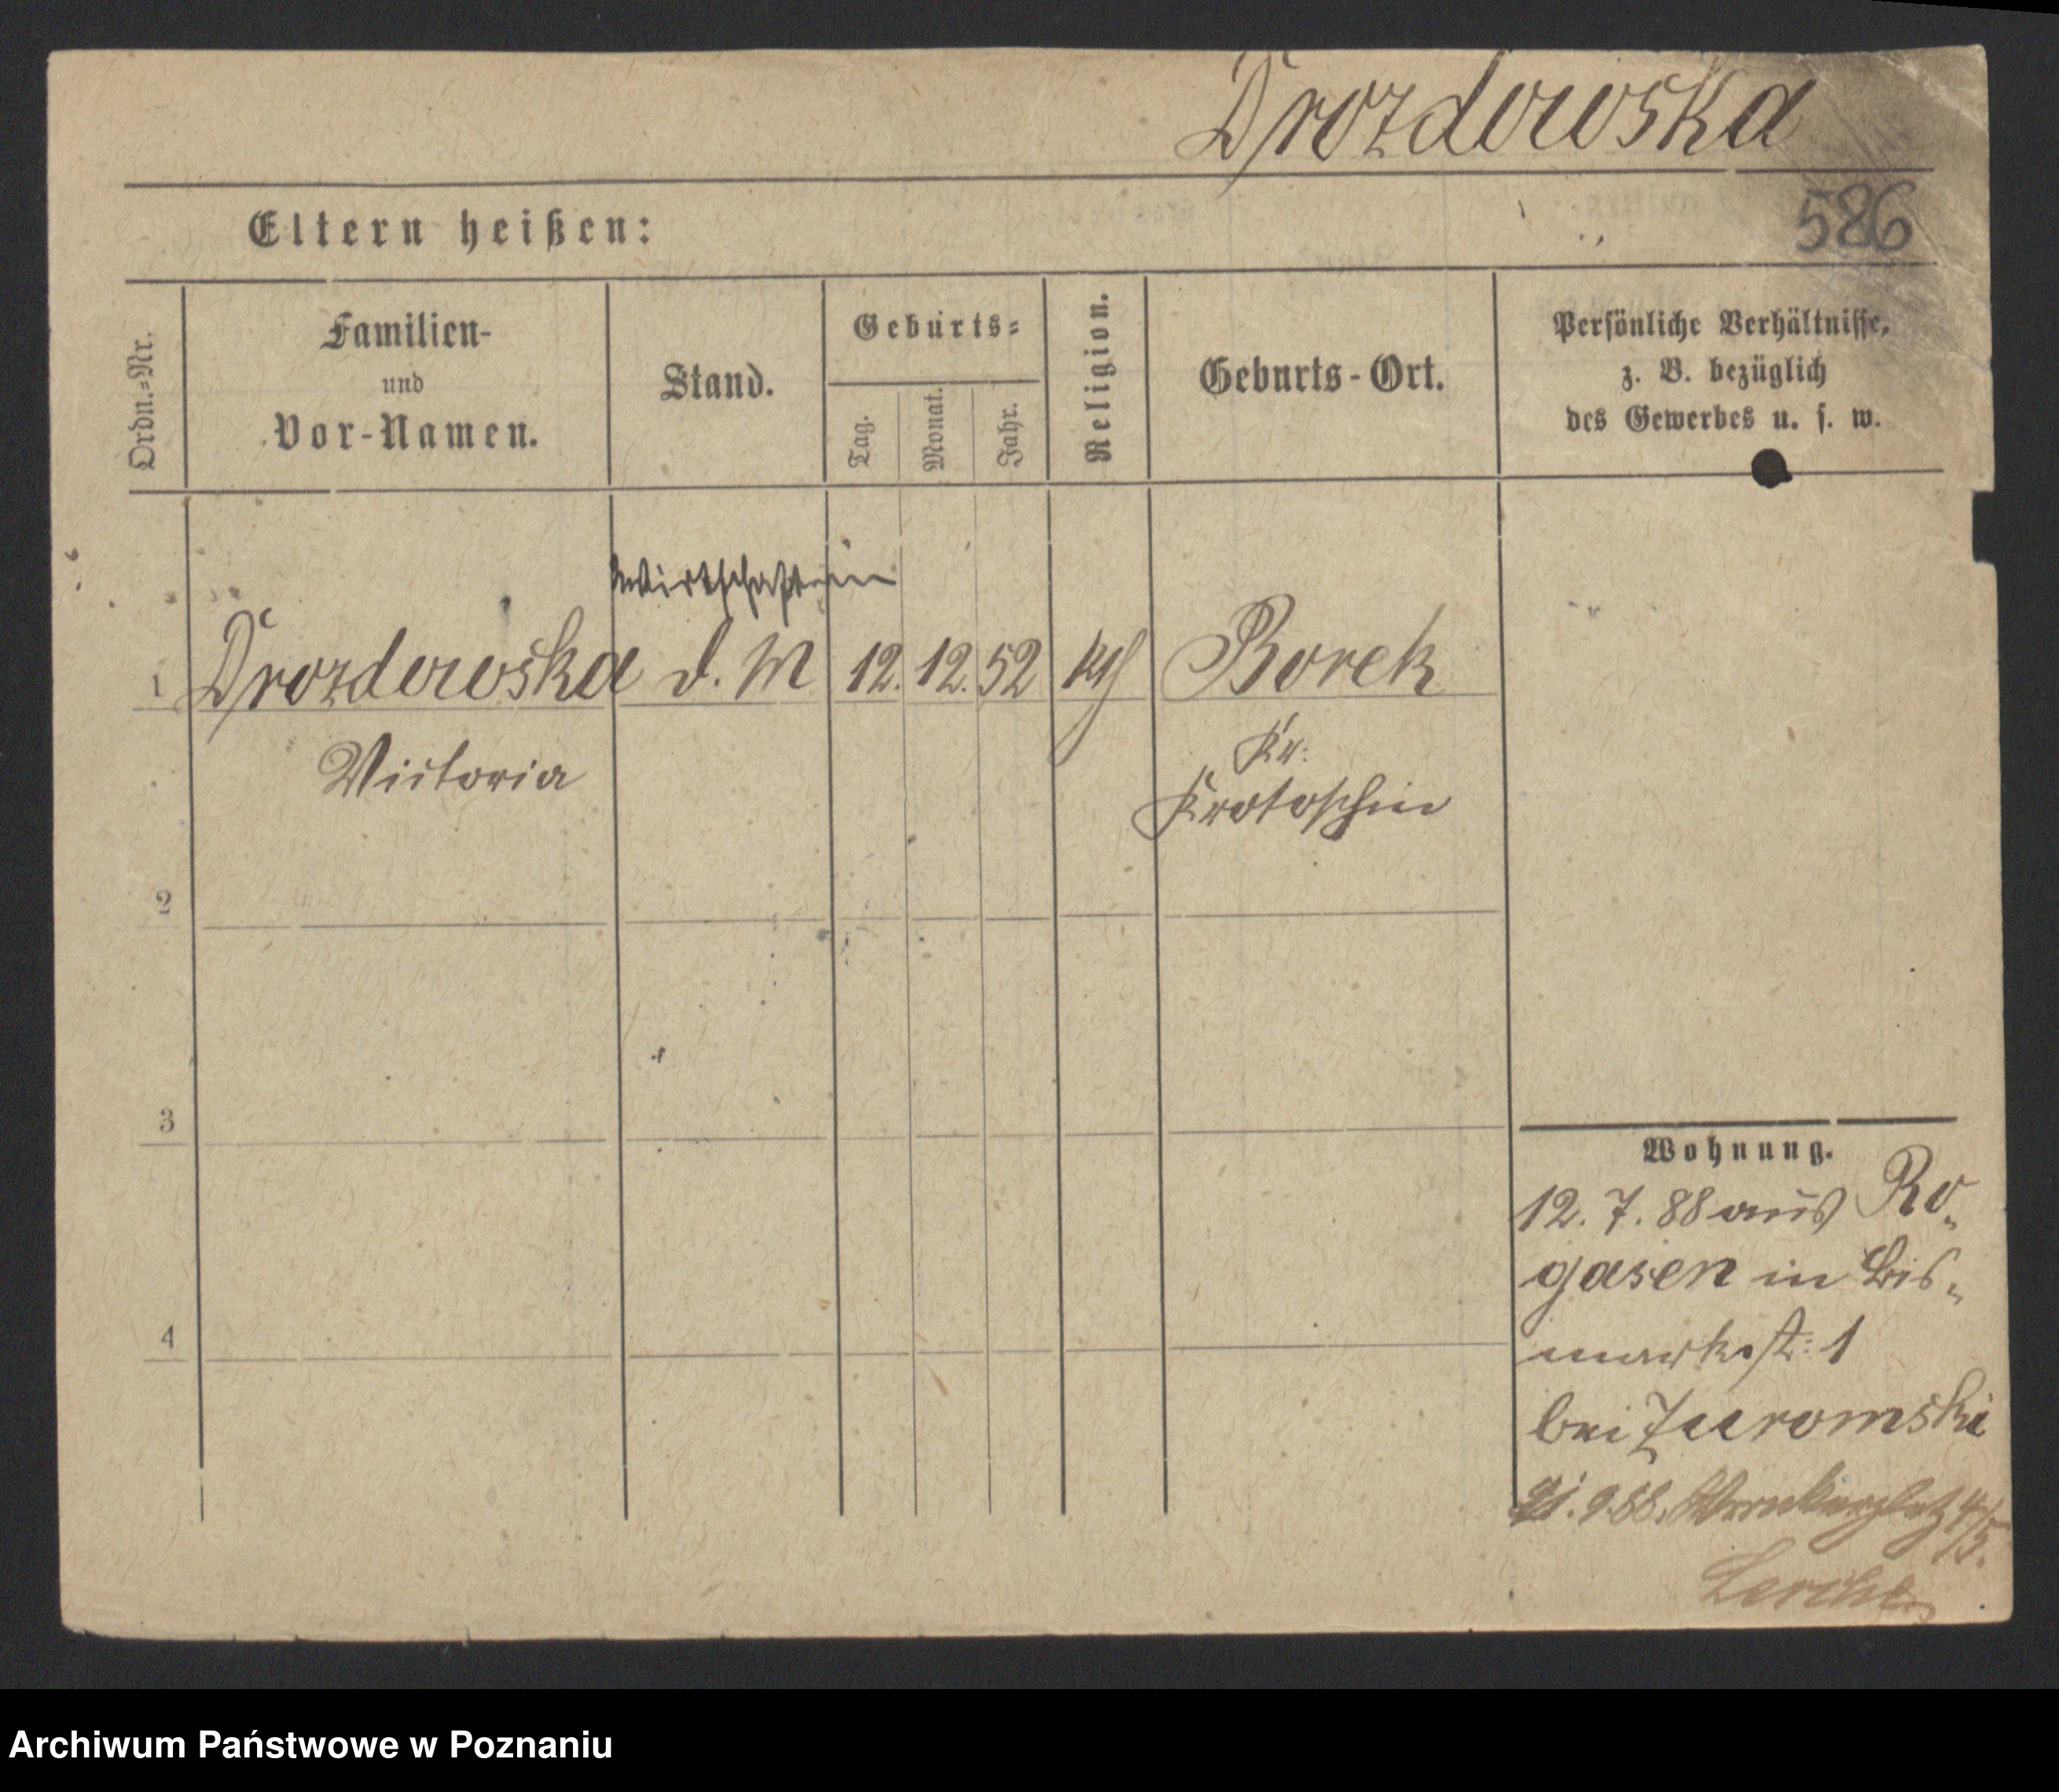 Drozdowska
586
Eltern heißen:
Ordn.-Nr.
Familien-
und
Vor-Namen.
Stand.
Geburts-
Tag.
Monat.
Jahr.
Religion.
Geburts-Ort.
Persönliche Verhältnisse,
z. B. bezüglich
des Gewerbes u. s. w.
Wirtschafterin
1 Drozdowska d. M 12. 12. 52 kth Borek
Victoria
Kr.
Krotoschin
2
3
4
Wohnung.
12. 7. 88 aus Ro-
gasen in Bis-
markst. 1
bei Zuromski
21. 9 88. 4/5.
Lerche
Archiwum Państwowe w Poznaniu